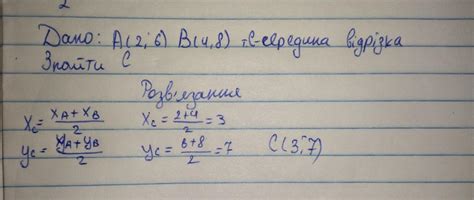 2
Дано: A(2;6) B(4,8) т.C-середина відрізка
Знайти C
Розв'язання
Xc = (XA + XB)/2   Xc = (2+4)/2 = 3
yc = (yA + yB)/2   yc = (6+8)/2 = 7   C(3;7)